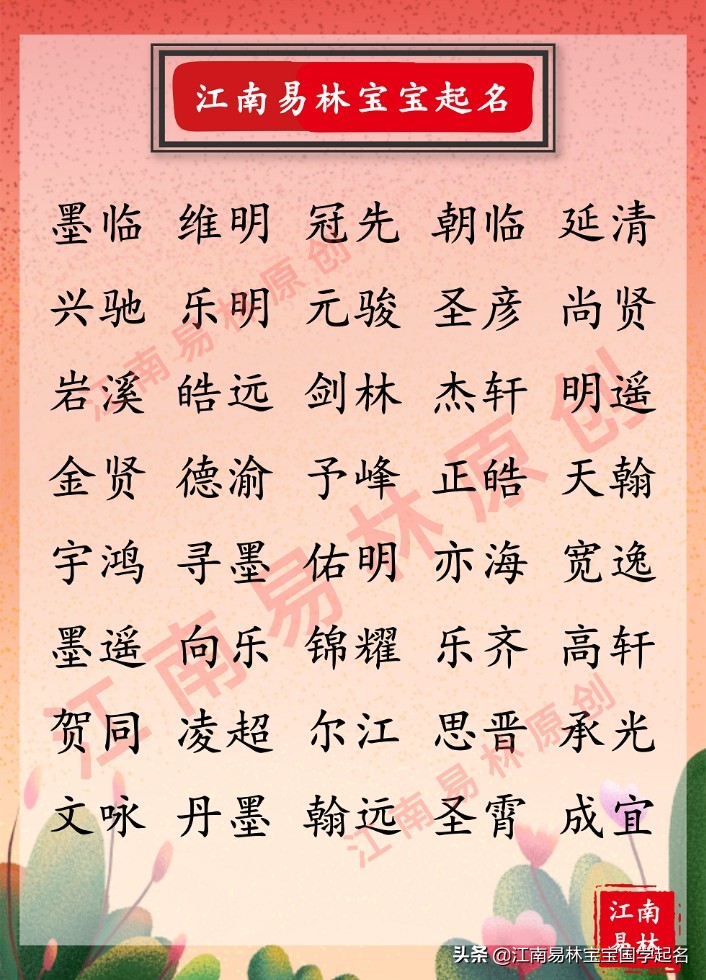 江南易林宝宝起名
墨临 维明 冠先 朝临 延清
兴驰 乐明 元骏 圣彦 尚贤
岩溪 皓远 剑林 杰轩 明遥
金贤 德渝 予峰 正皓 天翰
宇鸿 寻墨 佑明 亦海 宽逸
墨遥 向乐 锦耀 乐齐 高轩
贺同 凌超 尔江 思晋 承光
文咏 丹墨 翰远 圣霄 成宜
江南易林原创
江南易林原创
江南易林原创
江南
易林
头条 @江南易林宝宝国学起名